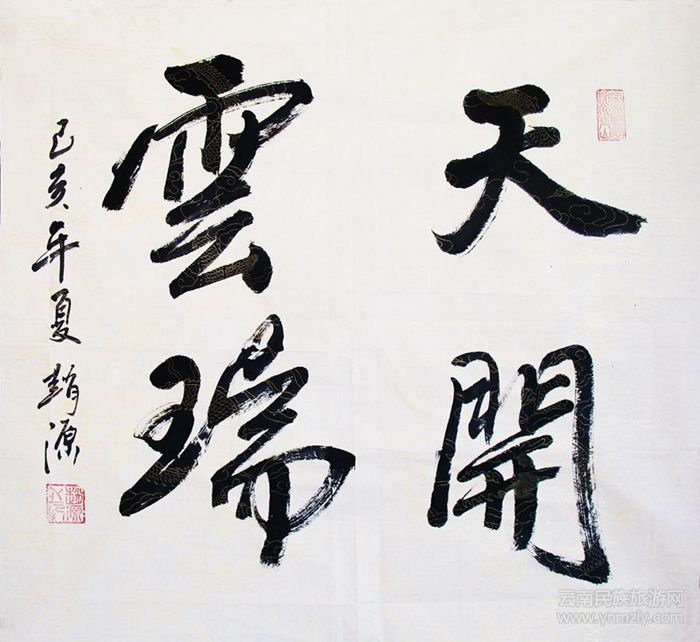 天開
雲瑞
己亥年夏 趙源
云南民族旅游网
www.ynmzly.com